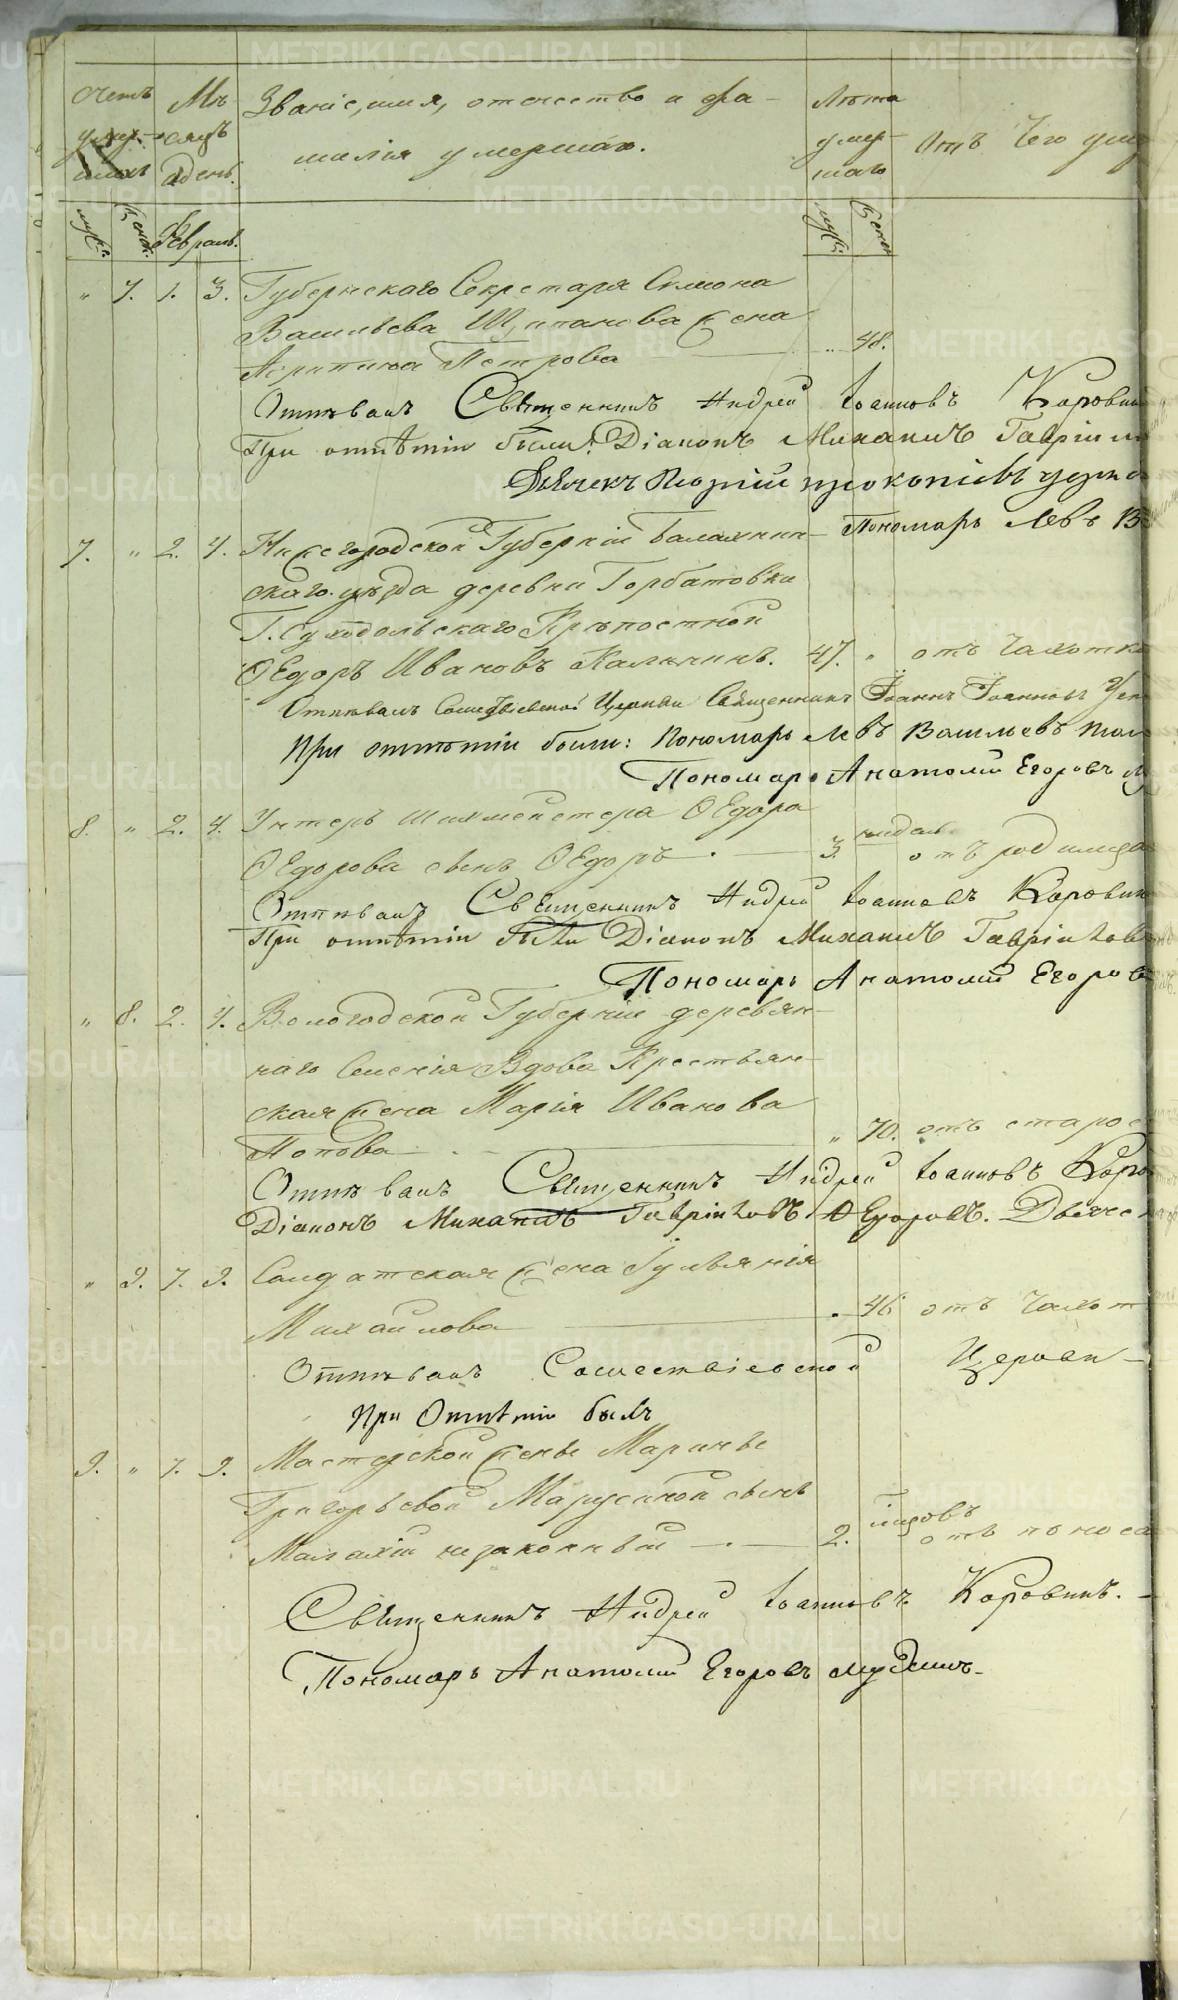 Счетъ умер- шихъ
Мѣ- сяцъ и день.
Званіе, имя, отчество и фа-
милія умершаго.
Лѣта умер- шаго
Отъ чего умер
муж. женс. Февраль.
муж. женс
" 7. 1. 3. Губернскаго Секретаря Симона
Васильева Щипанова жена
Агрипина Петрова " 48.
Отпѣвалъ Священникъ Андрей Іоанновъ Коровин
При отпѣтіи были: Діаконъ Михаилъ Гавріил
Дьячекъ Георгій Прокопіевъ
Пономарь Левъ В
7. " 2. 4. Нижегородской Губерніи Балахнин-
скаго уѣзда деревни Горбатовки
Г. Суходольскаго Крѣпостной
Ѳедоръ Ивановъ Калининъ. 47. " отъ чахотки
Отпѣвалъ Сошествіевской Церкви Священникъ Іоаннъ Іоанновъ
При отпѣтіи были: Пономарь Левъ Васильевъ
Пономарь Анатолій Егоровъ
8. " 2. 4. Унтеръ Шихмейстера Ѳедора
Ѳедорова сынъ Ѳедоръ 3. недѣл отъ родимца
Отпѣвалъ Священникъ Андрей Іоанновъ Коровин
При отпѣтіи были Діаконъ Михаилъ Гавріиловъ
Пономарь Анатолій Егоров
" 8. 2. 4. Вологодской Губерніи деревян-
наго Селенія Вдова Крестьян-
ская жена Марія Иванова
Попова " 70. отъ старос
Отпѣвалъ Священникъ Андрей Іоанновъ Коро
Діаконъ Михаилъ Гавріиловъ Ѳегоровъ. Дьячек
" 9. 7. 9. Солдатская жена Іульянія
Михайлова " 46 отъ чахот
Отпѣвалъ Сошествіевской Церкви
При Отпѣтіи былъ
9. " 7. 9. Мастерской жены Марины
Григорьевой Марусиной сынъ
Малахій незаконный 2. годовъ отъ поноса
Священникъ Андрей Іоанновъ Коровинъ.
Пономарь Анатолій Егоровъ